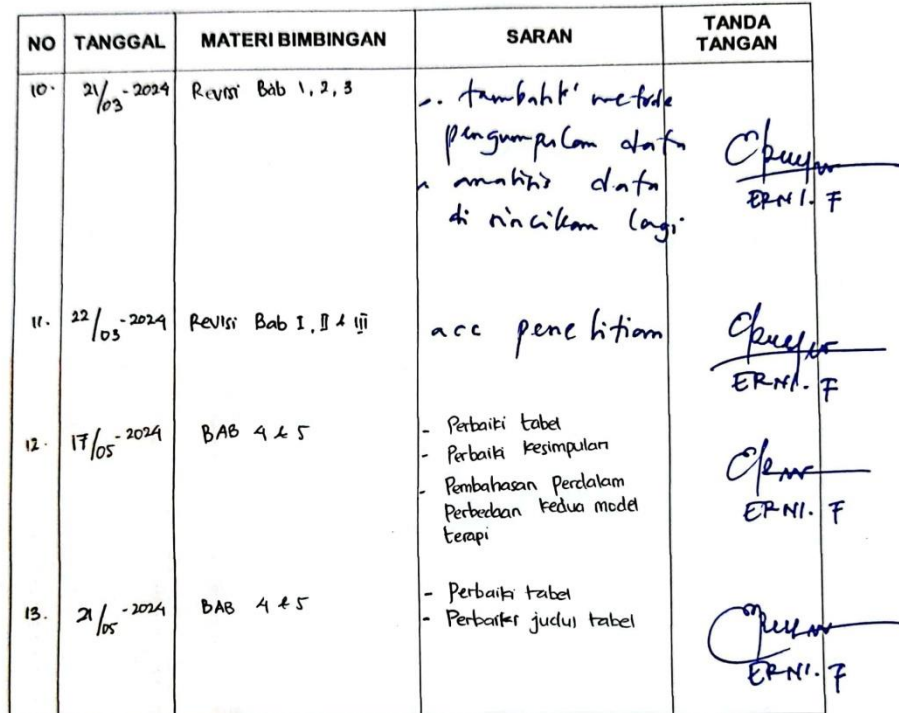 NO TANGGAL MATERI BIMBINGAN SARAN TANDA TANGAN
10. 21/03-2024 Revisi Bab 1, 2, 3
- tambahk' metode
pengumpulan data
- analisis data
di rincikan lagi
ERNI. F
11. 22/03-2024 Revisi Bab I, II & III acc penelitian
ERNI. F
12. 17/05-2024 BAB 4 & 5
- Perbaiki tabel
- Perbaiki kesimpulan
- Pembahasan Perdalam
Perbedaan kedua model
terapi
ERNI. F
13. 21/05-2024 BAB 4 & 5
- Perbaiki tabel
- Perbaiki judul tabel
ERNI. F